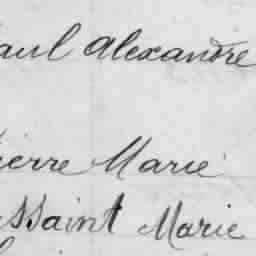 aul Alexandre
ierre Marie
ssaint Marie